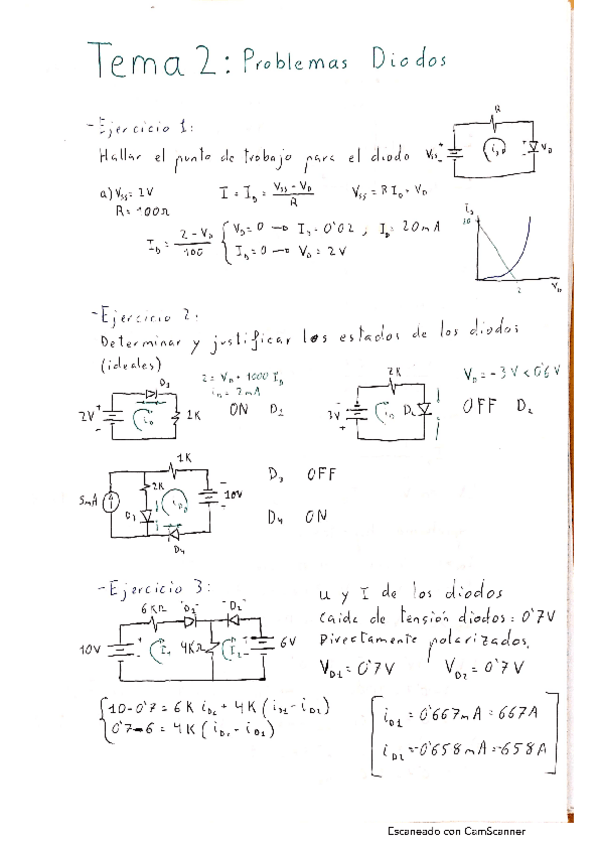 Tema 2: Problemas Diodos
-Ejercicio 1:
Hallar el punto de trabajo para el diodo
R
Vss
iD
VD
a) Vss = 2V
R = 100Ω
I = ID = Vss - VD / R
Vss = R ID + VD
ID = 2 - VD / 100
VD = 0 → ID = 0'02 ; ID = 20mA
ID = 0 → VD = 2V
iD
20
2
VD
-Ejercicio 2:
Determinar y justificar los estados de los diodos
(ideales)
D1
2V
iD
1K
2 = VD + 1000 ID
iD = 2mA
ON D1
2K
3V
iD
VD = -3V < 0'6V
OFF D2
1K
2K
5mA
D3
10V
D4
D3 OFF
D4 ON
-Ejercicio 3:
6KΩ "D1" "D2"
10V
4KΩ
6V
u y I de los diodos
Caida de tensión diodos: 0'7V
Directamente polarizados.
VD1 = 0'7V VD2 = 0'7V
0'7-6 = 4K (
iD1 = 0'667mA = 667A
iD2 = -0'658mA = -658A
Escaneado con CamScanner